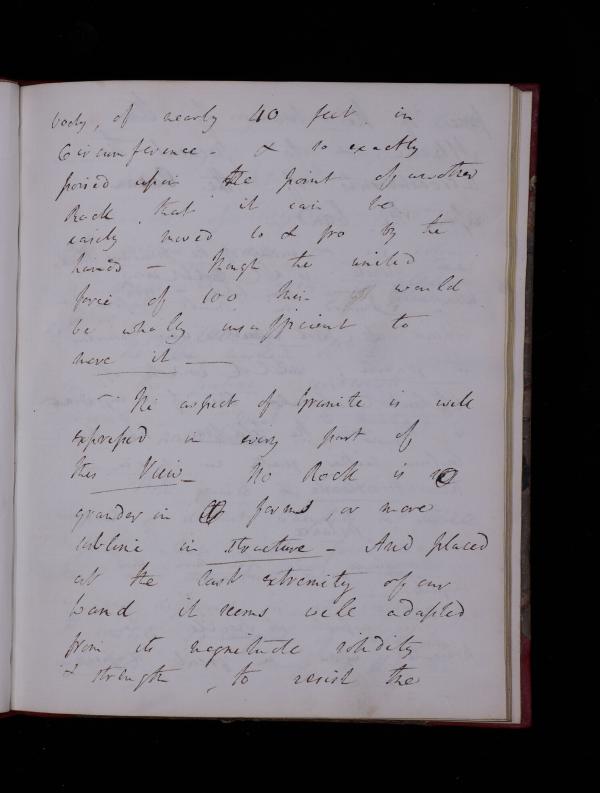 body, of nearly 40 feet in
Circumference - & so exactly
poised upon the point of another
Rock that it can be
easily moved to & fro by the
hand - though the united
force of 100 Men would
be wholly insufficient to
move it —
- The aspect of Granite is well
expressed in every part of
this View - No Rock is
grander in forms, or more
sublime in structure - And placed
at the last extremity of our
Land it seems well adapted
from its magnitude solidity
& strength, to resist the